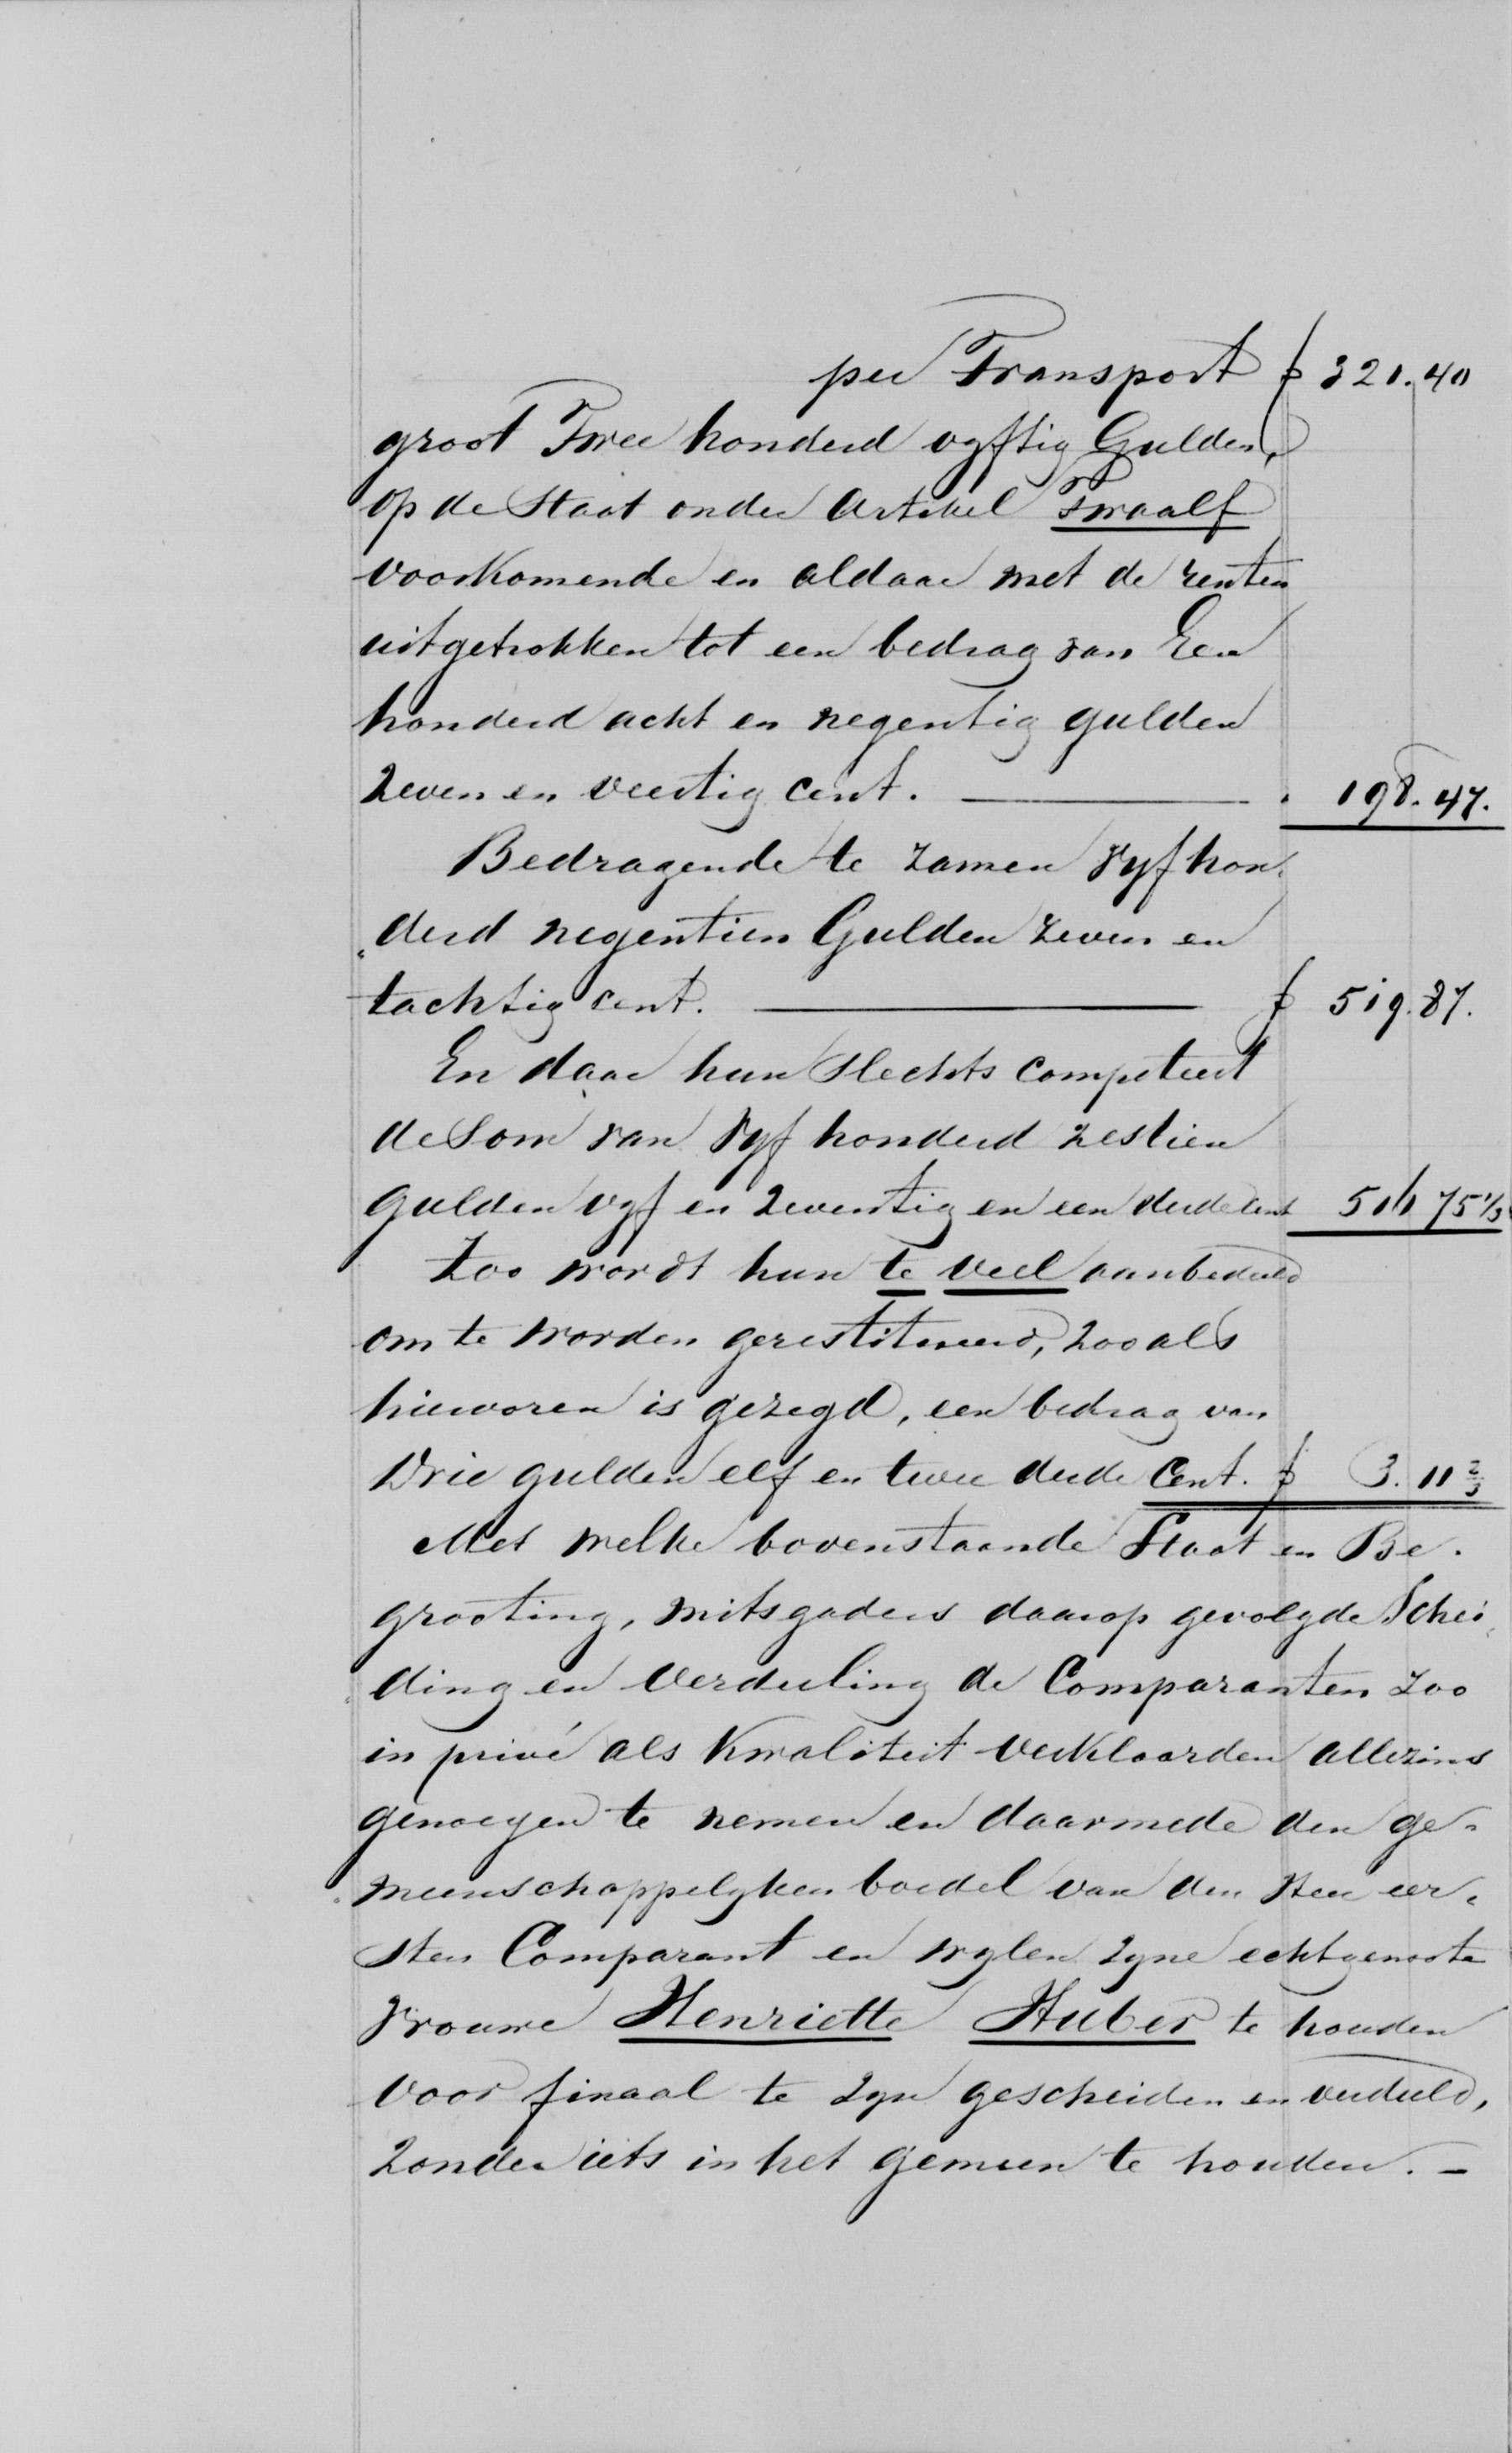 per Transport f 321.40
groot Twee honderd vyftig Gulden,
op de Staat onder Artikel Twaalf
voorkomende en aldaar met de renten
uitgetrokken tot een bedrag van Een
honderd acht en negentig gulden
zeven en veertig cent. — " 198.47.
Bedragende te zamen vyf hon-
"derd negentien Gulden zeven en
tachtig cent. — f 519.87.
En daar hun slechts competeert
de Som van vyf honderd zestien
gulden vyf en zeventig en een derde cent 516 75 1/3
Zoo wordt hun te veel aanbedeeld
om te worden gerestitueerd, zooals
hiervoren is gezegd, een bedrag van
Drie gulden elf en twee derde Cent. f 3.11 2/3
Met welke bovenstaande Staat en Be-
grooting, mitsgaders daarop gevolgde Schei-
"ding en Verdeeling de Comparanten zoo
in privé als Kwaliteit verklaarden allezins
genoegen te nemen en daarmede den ge-
"meenschappelyken boedel van den Heer eer-
sten Comparant en wylen zyne echtgenoote
Vrouwe Henriette Huber te houden
voor finaal te zyn gescheiden en verdeeld,
zonder iets in het gemeen te houden. -